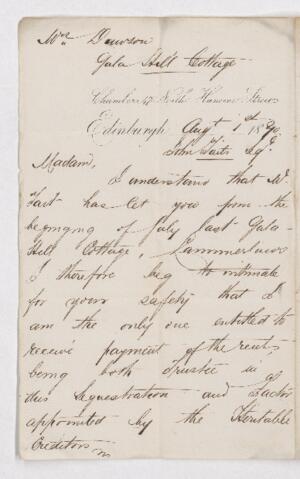 Mrs Dawson
Gala Hill Cottage
Chambers, 47 North Hanover Street
Edinburgh, Augt 1st 1870
John Tait's Seqn
Madam,
I understand that Mr
Tait has let you from the
beginging of July last Gala-
Hill Cottage,
I therefore beg to intimate
for your safety that I
am the only one entitled to
receive payment of the rent
being both Trustee in
this Sequestration and Factor
appointed by the Heritable
Creditors